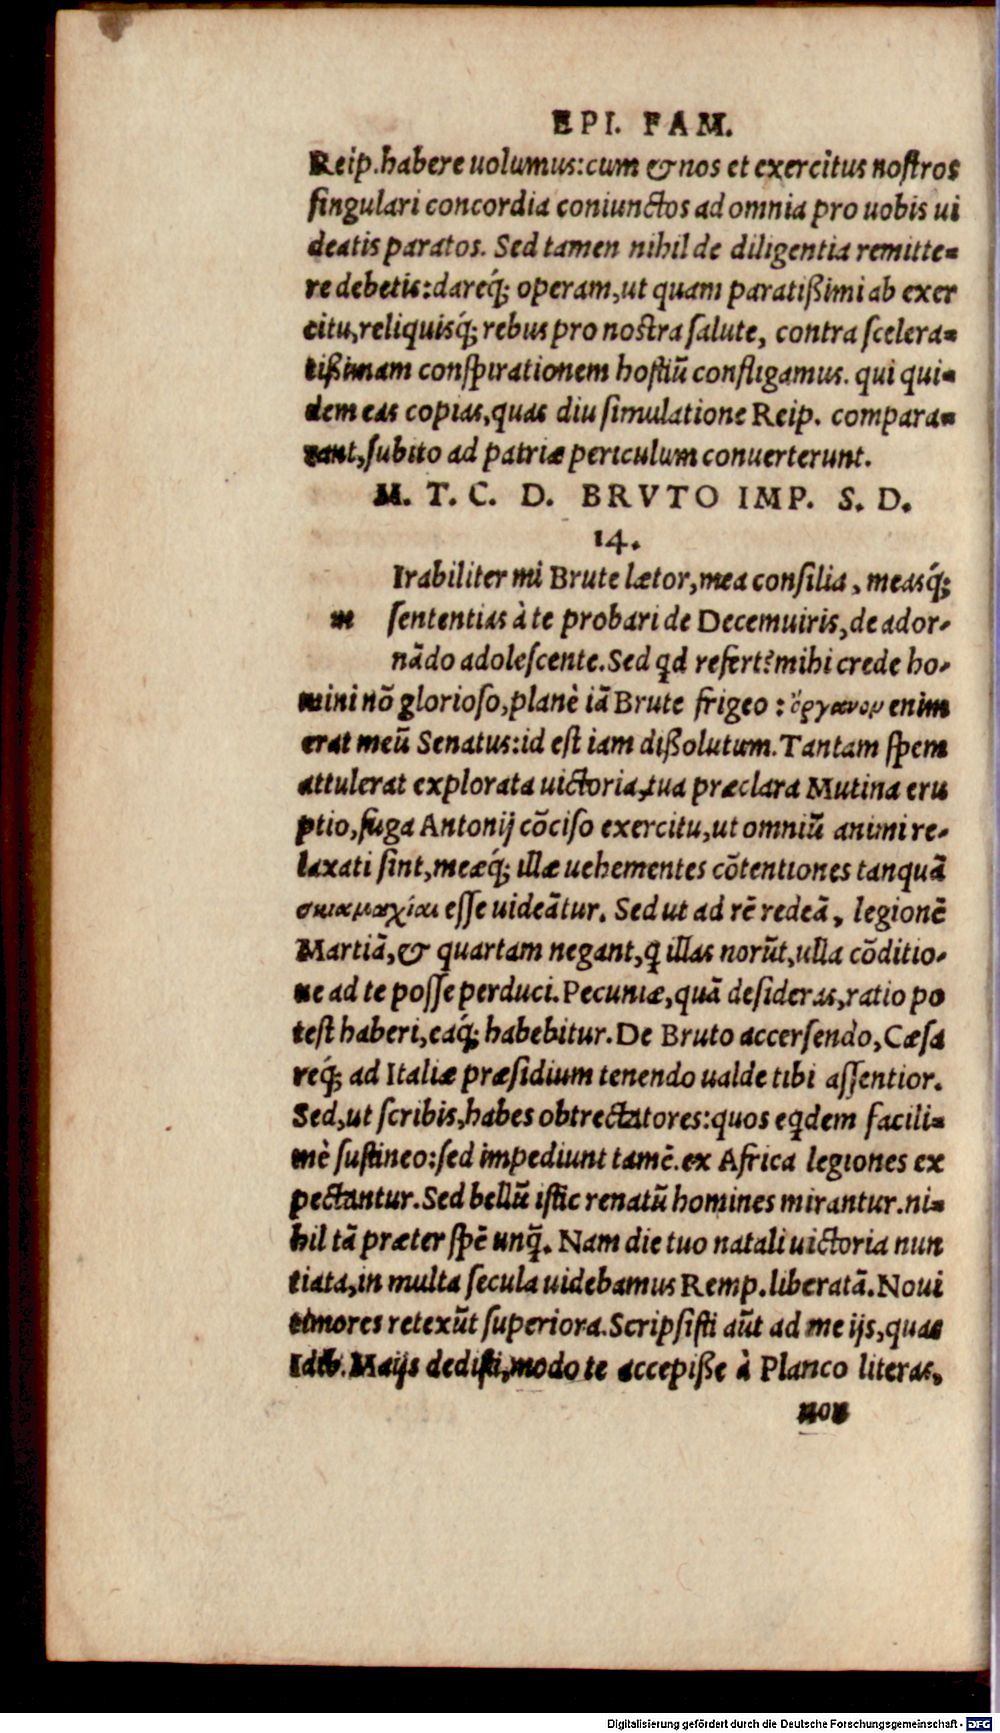 EPI. FAM.
Reip. habere uolumus: cum & nos et exercitus nostros
singulari concordia coniunctos ad omnia pro uobis ui
deatis paratos. Sed tamen nihil de diligentia remitte=
re debetis: dareq́; operam, ut quam paratißimi ab exer
citu, reliquisq́; rebus pro nostra salute, contra scelera=
tißimam conspirationem hostiũ confligamus. qui qui=
dem eas copias, quas diu simulatione Reip. compara=
rant, subito ad patriæ periculum conuerterunt.
M. T. C. D. BRVTO IMP. S. D.
14.
Irabiliter mi Brute lætor, mea consilia, measq́;
m sententias à te probari de Decemuiris, de ador-
nãdo adolescente. Sed qd refert? mihi crede ho-
mini nõ glorioso, planè iã Brute frigeo: ὄργανον enim
erat meũ Senatus: id est iam dißolutum. Tantam spem
attulerat explorata uictoria, tua præclara Mutina eru
ptio, fuga Antonij cõciso exercitu, ut omniũ animi re-
laxati sint, meæq́; illæ uehementes cõtentiones tanquã
σκιαμαχίαι esse uideãtur. Sed ut ad rẽ redeã, legionẽ
Martiã, & quartam negant, q̃ illas norũt, ulla cõditio-
ne ad te posse perduci. Pecuniæ, quã desideras, ratio po
test haberi, eaq́; habebitur. De Bruto accersendo, Cæsa
req́; ad Italiæ præsidium tenendo ualde tibi assentior.
Sed, ut scribis, habes obtrectatores: quos eqdem facili=
mè sustineo: sed impediunt tamẽ. ex Africa legiones ex
pectantur. Sed bellũ istic renatũ homines mirantur. ni=
hil tã præter spẽ unq̃. Nam die tuo natali uictoria nun
tiata, in multa secula uidebamus Remp. liberatã. Noui
timores retexũt superiora. Scripsisti aũt ad me ijs, quas
Idib. Maijs dedisti, modo te accepiße à Planco literas,
non
Digitalisierung gefördert durch die Deutsche Forschungsgemeinschaft - DFG